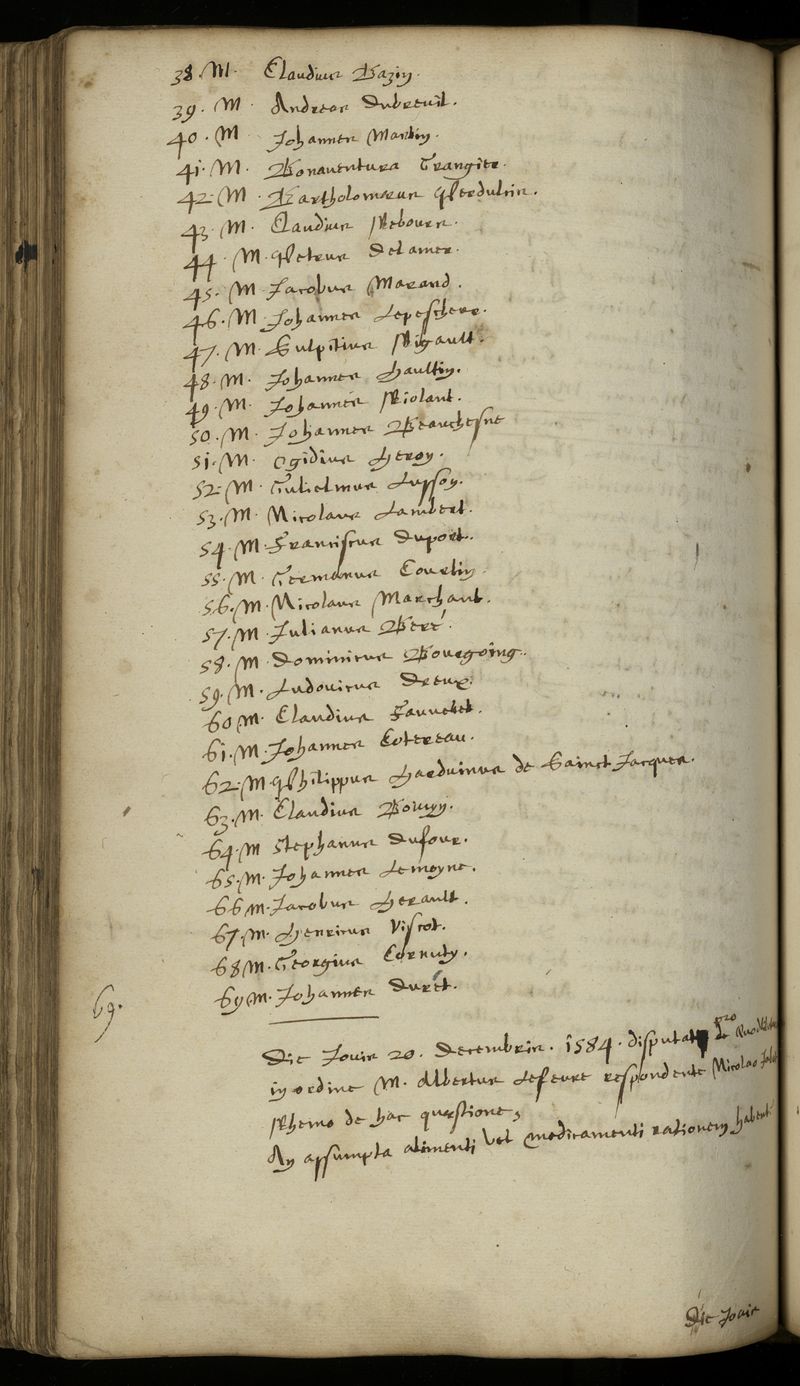 38. M. Claudius Bazin.
39. M. Andreas Dubreuil.
40. M Johannes Martin.
41. M. Bonaventura Grangier.
42. M. Bartholomæus Perdulcis.
43. M. Claudius Rebours.
44. M. Petrus Delamer.
45. M. Jacobus Marand.
46. M. Johannes Lepescheur.
47. M. Sulpitius Pigault.
48. M. Johannes Haultin.
49. M. Johannes Riolant.
50. M. Johannes Beauchesne
51. M. Egidius Heron.
52. M. Gulielmus Lusson.
53. M. Nicolaus Lambert.
54. M. Franciscus Duport.
55. M. Germanus Courtin.
56. M. Nicolaus Marchant.
57. M. Julianus Beré.
58. M. Dominicus Bourgoing.
59. M. Ludovicus Dreux.
60 M. Claudius Fauvelet.
61. M. Johannes Cotereau.
62. M. Philippus Harduinus de Sainct Jacques.
63. M. Claudius Bouvyn.
64. M Stephanus Dufour.
65. M. Johannes Lemoyne.
66 M. Jacobus Herault.
67. M. Henricus Viscot.
68 M. Georgius Cornuty.
69 M. Johannes Duret.
69.
Die Jovis 20. Decembris. 1584. disputat de
in ordine M. Albertus Lefevre respondente Nicolao
Rhemo de hac quæstione,
An assumpta alimenti vel medicamenti rationem
Die Jovis